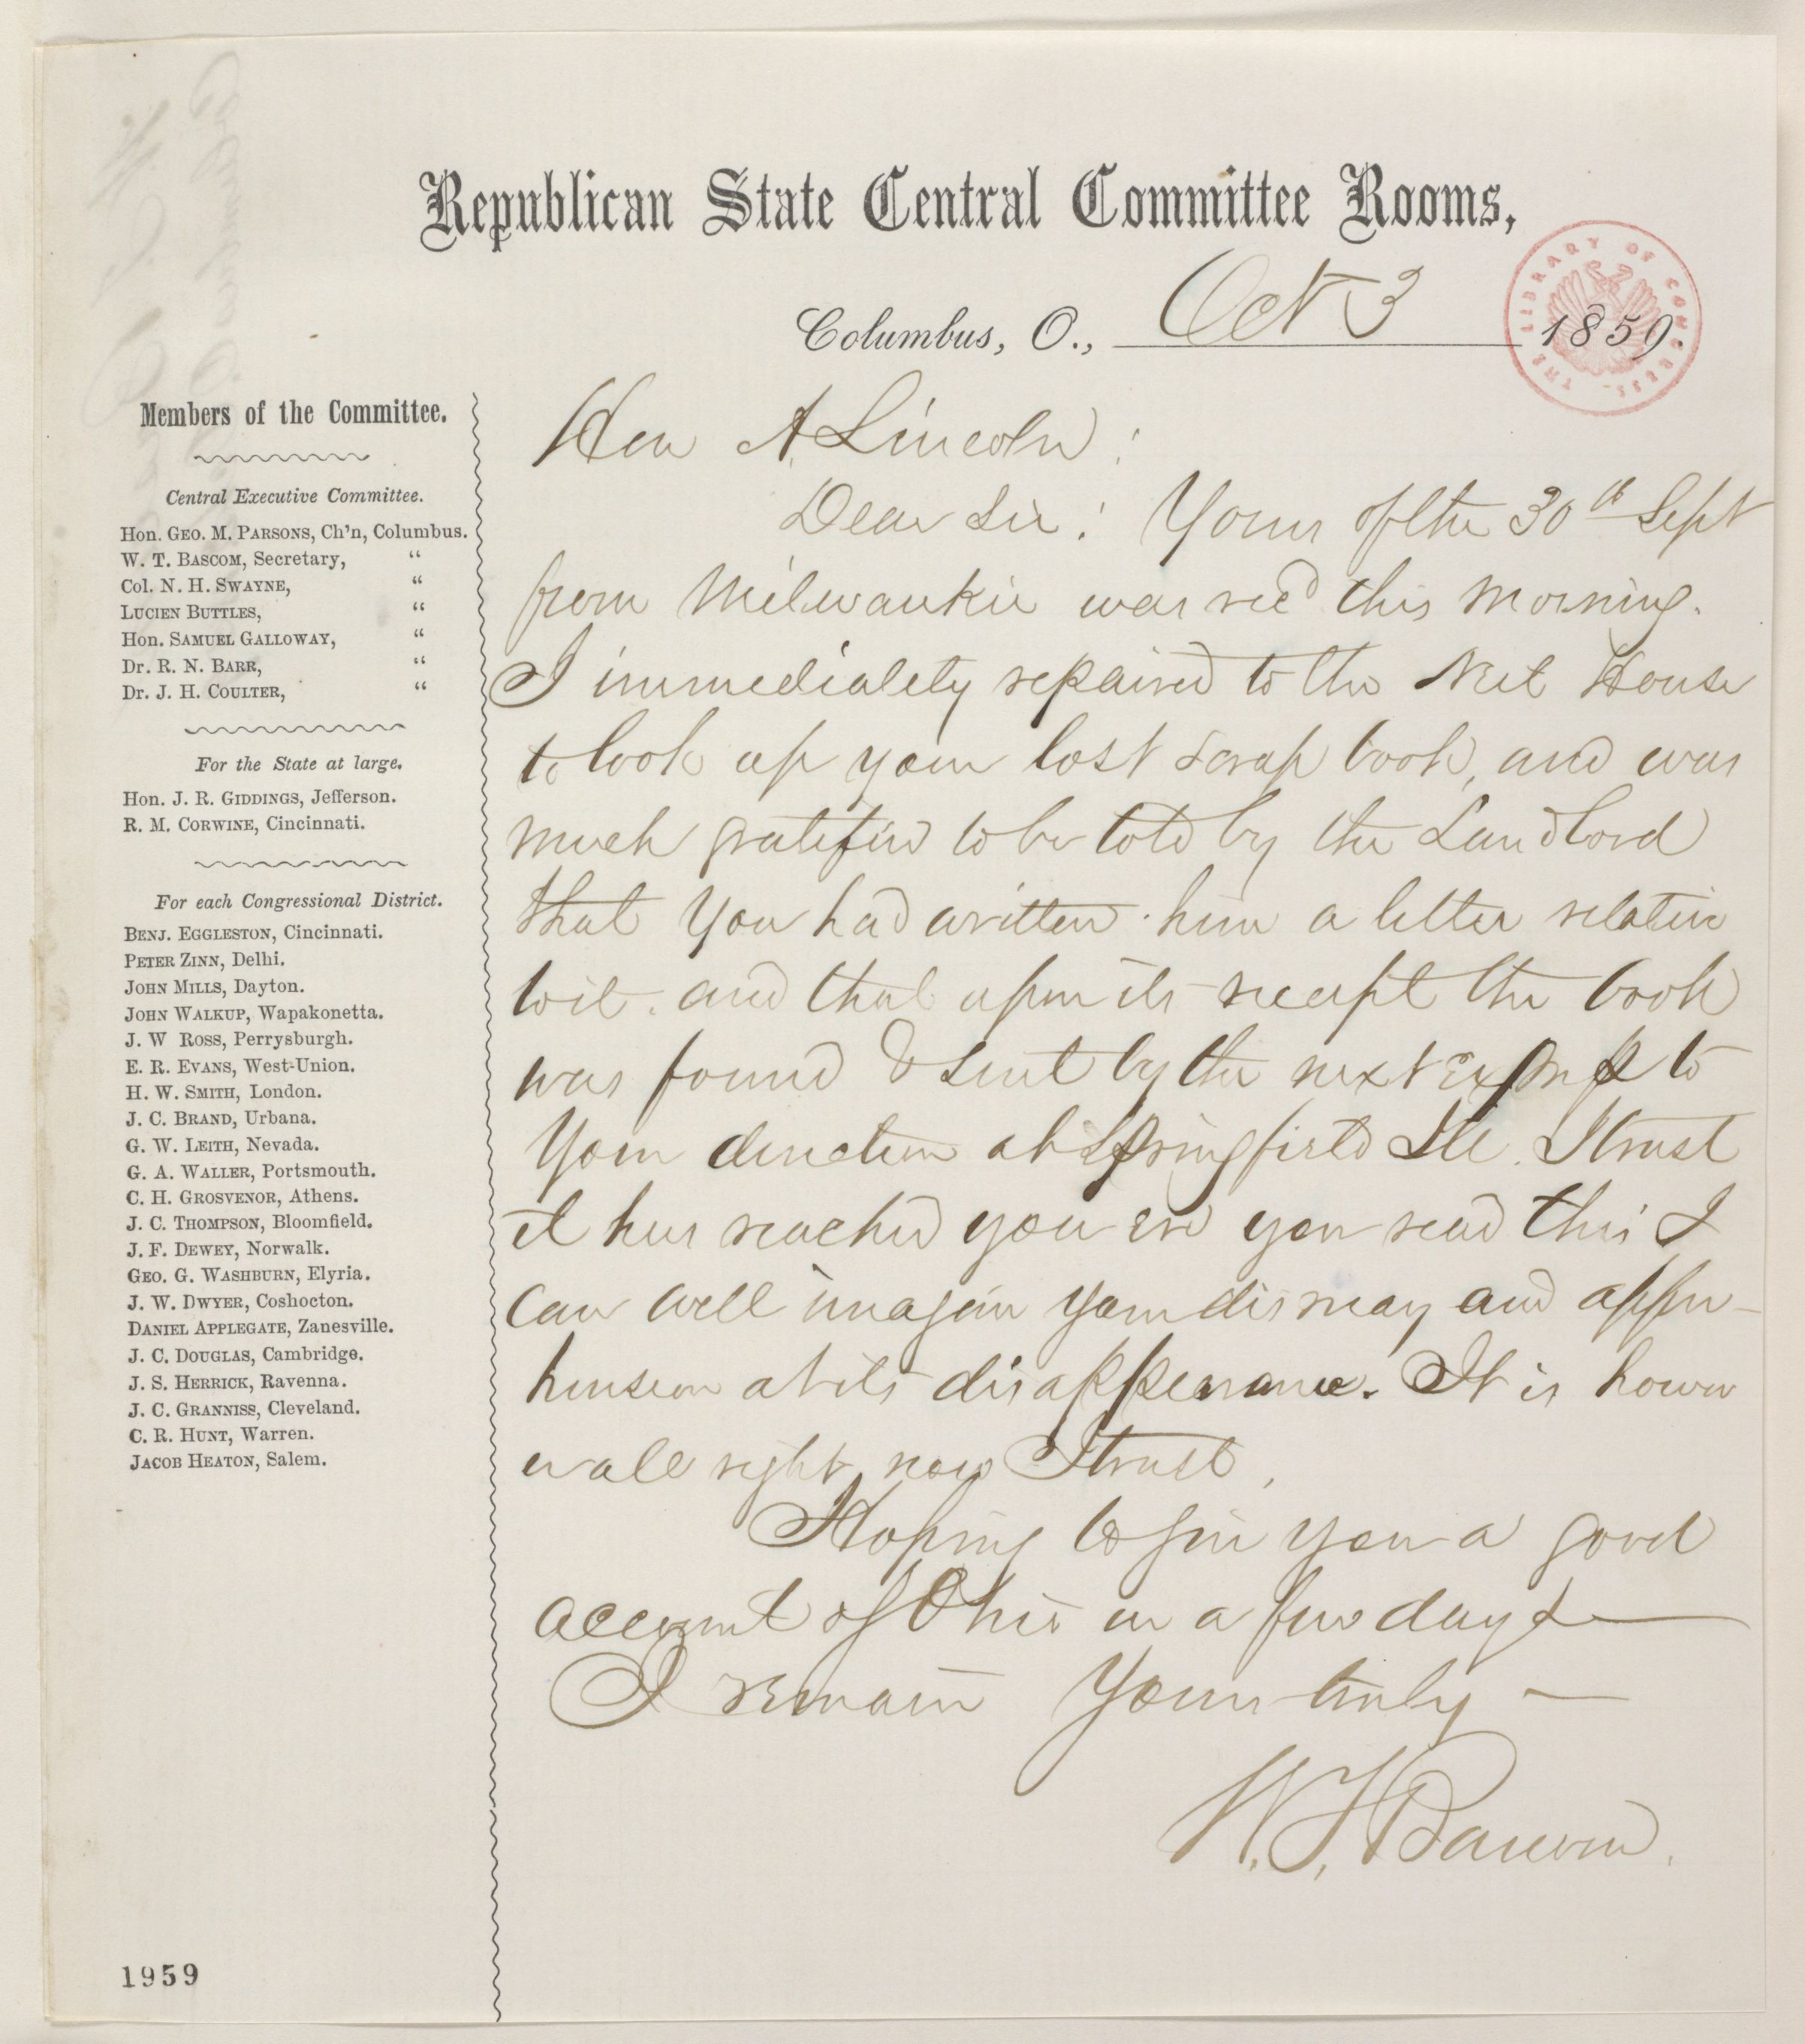 Republican State Central Committee Rooms,
Columbus, O., Oct 3 1859.
THE LIBRARY OF CONGRESS
Members of the Committee.
Central Executive Committee.
Hon. GEO. M. PARSONS, Ch'n, Columbus.
W. T. BASCOM, Secretary, "
Col. N. H. SWAYNE, "
LUCIEN BUTTLES, "
Hon. SAMUEL GALLOWAY, "
Dr. R. N. BARR, "
Dr. J. H. COULTER, "
For the State at large.
Hon. J. R. GIDDINGS, Jefferson.
R. M. CORWINE, Cincinnati.
For each Congressional District.
BENJ. EGGLESTON, Cincinnati.
PETER ZINN, Delhi.
JOHN MILLS, Dayton.
JOHN WALKUP, Wapakonetta.
J. W ROSS, Perrysburgh.
E. R. EVANS, West-Union.
H. W. SMITH, London.
J. C. BRAND, Urbana.
G. W. LEITH, Nevada.
G. A. WALLER, Portsmouth.
C. H. GROSVENOR, Athens.
J. C. THOMPSON, Bloomfield.
J. F. DEWEY, Norwalk.
GEO. G. WASHBURN, Elyria.
J. W. DWYER, Coshocton.
DANIEL APPLEGATE, Zanesville.
J. C. DOUGLAS, Cambridge.
J. S. HERRICK, Ravenna.
J. C. GRANNISS, Cleveland.
C. R. HUNT, Warren.
JACOB HEATON, Salem.
Hon A. Lincoln:
Dear Sir: Yours of the 30th Sept
from Milwaukie was recd this morning.
I immediately repaired to the Neil House
to look up your lost scrap book, and was
much gratified to be told by the Landlord
that you had written him a letter relative
to it. and that upon its receipt the book
was found & sent by the next Express to
your direction at Springfield Ill. I trust
it has reached you ere you read this I
can well imagine your dismay and appre-
hension at its disappearance. It is howev
er all right now I trust.
Hoping to give you a good
account of Ohio in a few days
I remain Yours truly
W. T. Bascom.
1959